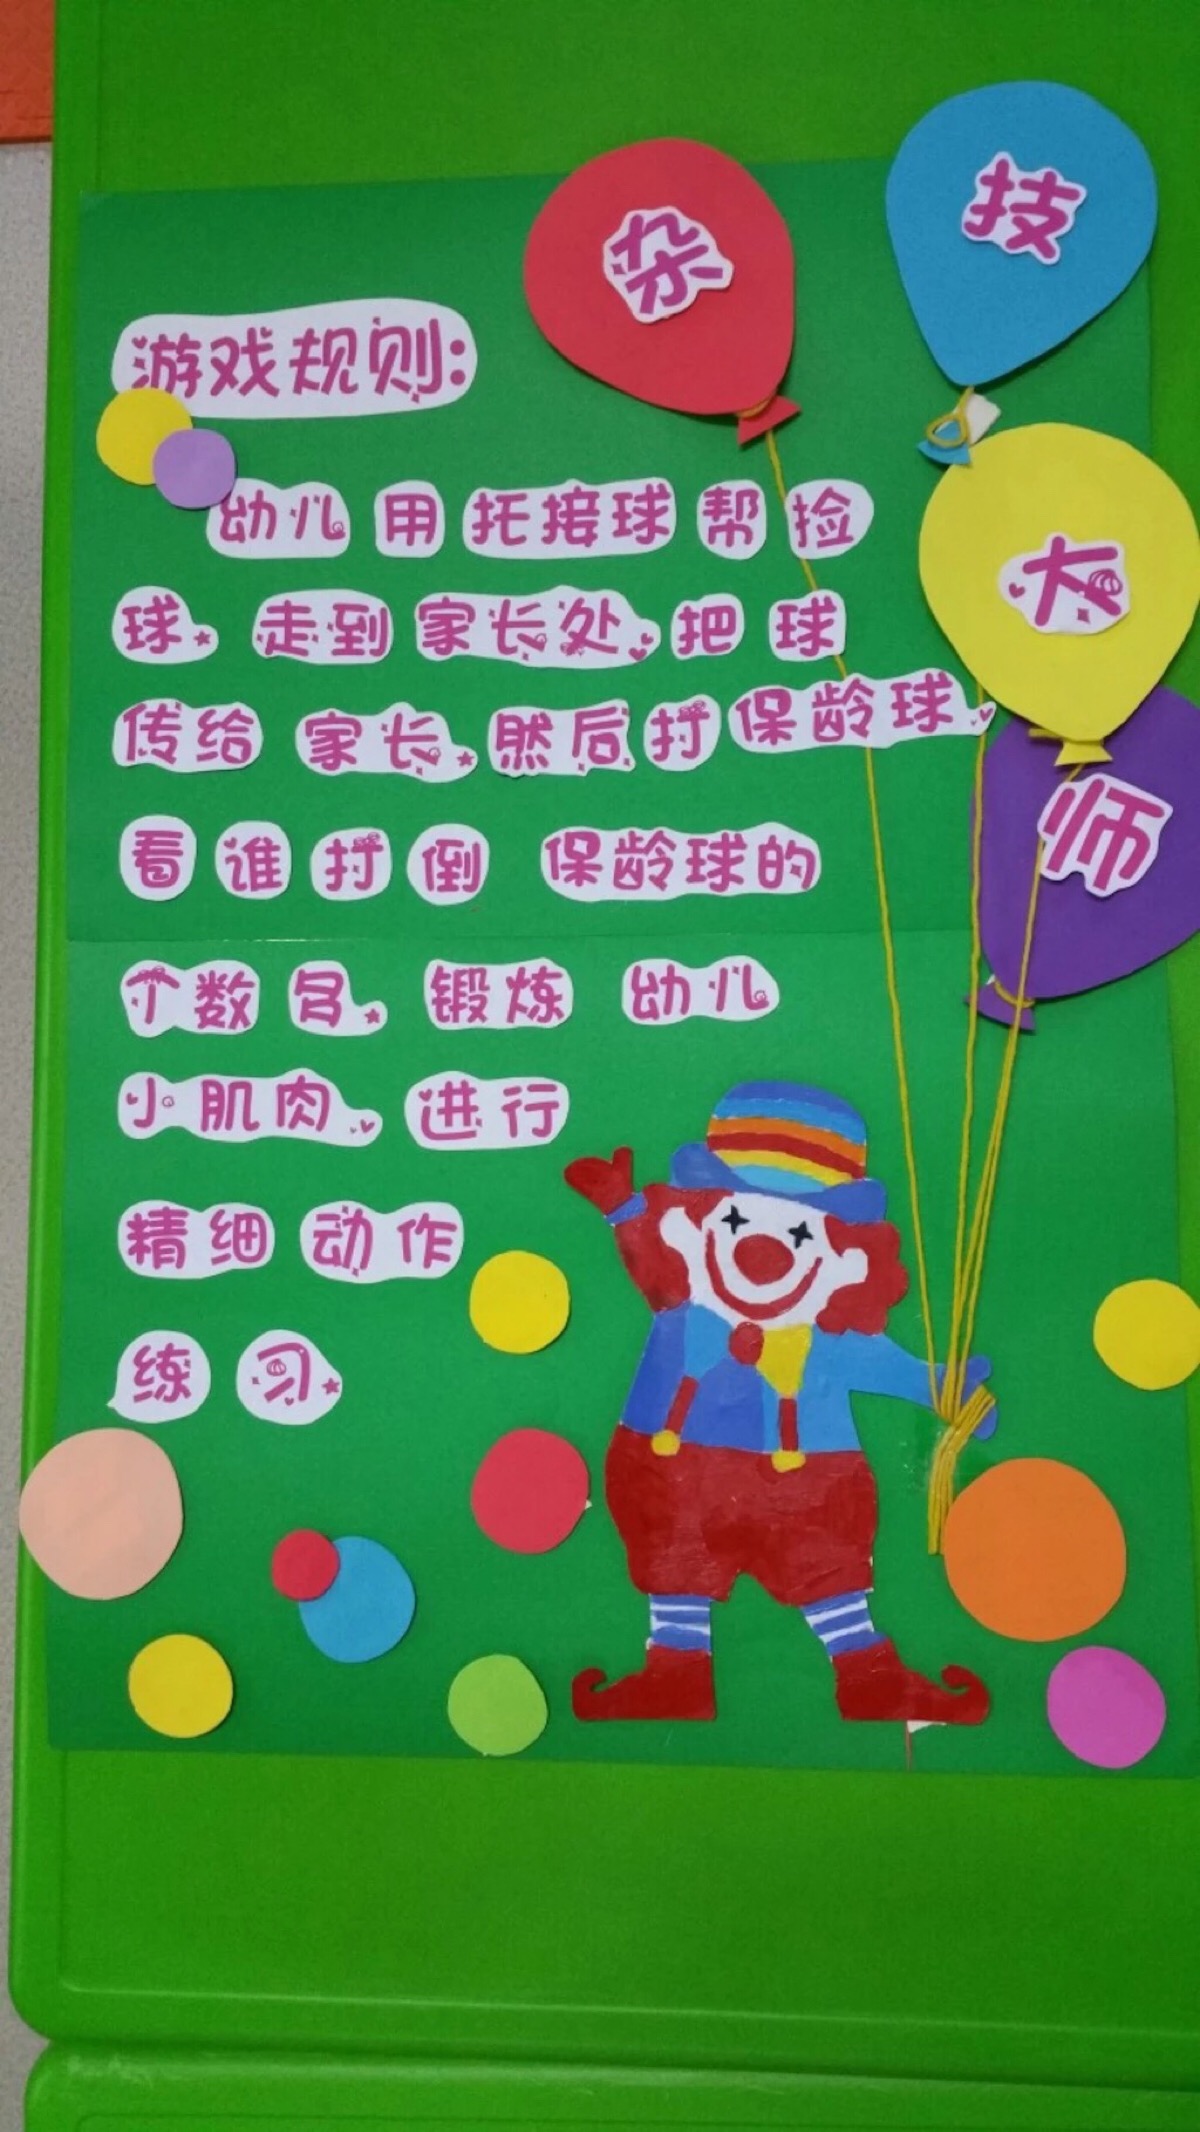 杂技大师
游戏规则:
幼儿用托接球帮捡
球.走到家长处.把球
传给家长.然后打保龄球.
看谁打倒保龄球的
个数多.锻炼幼儿
小肌肉.进行
精细动作
练习.